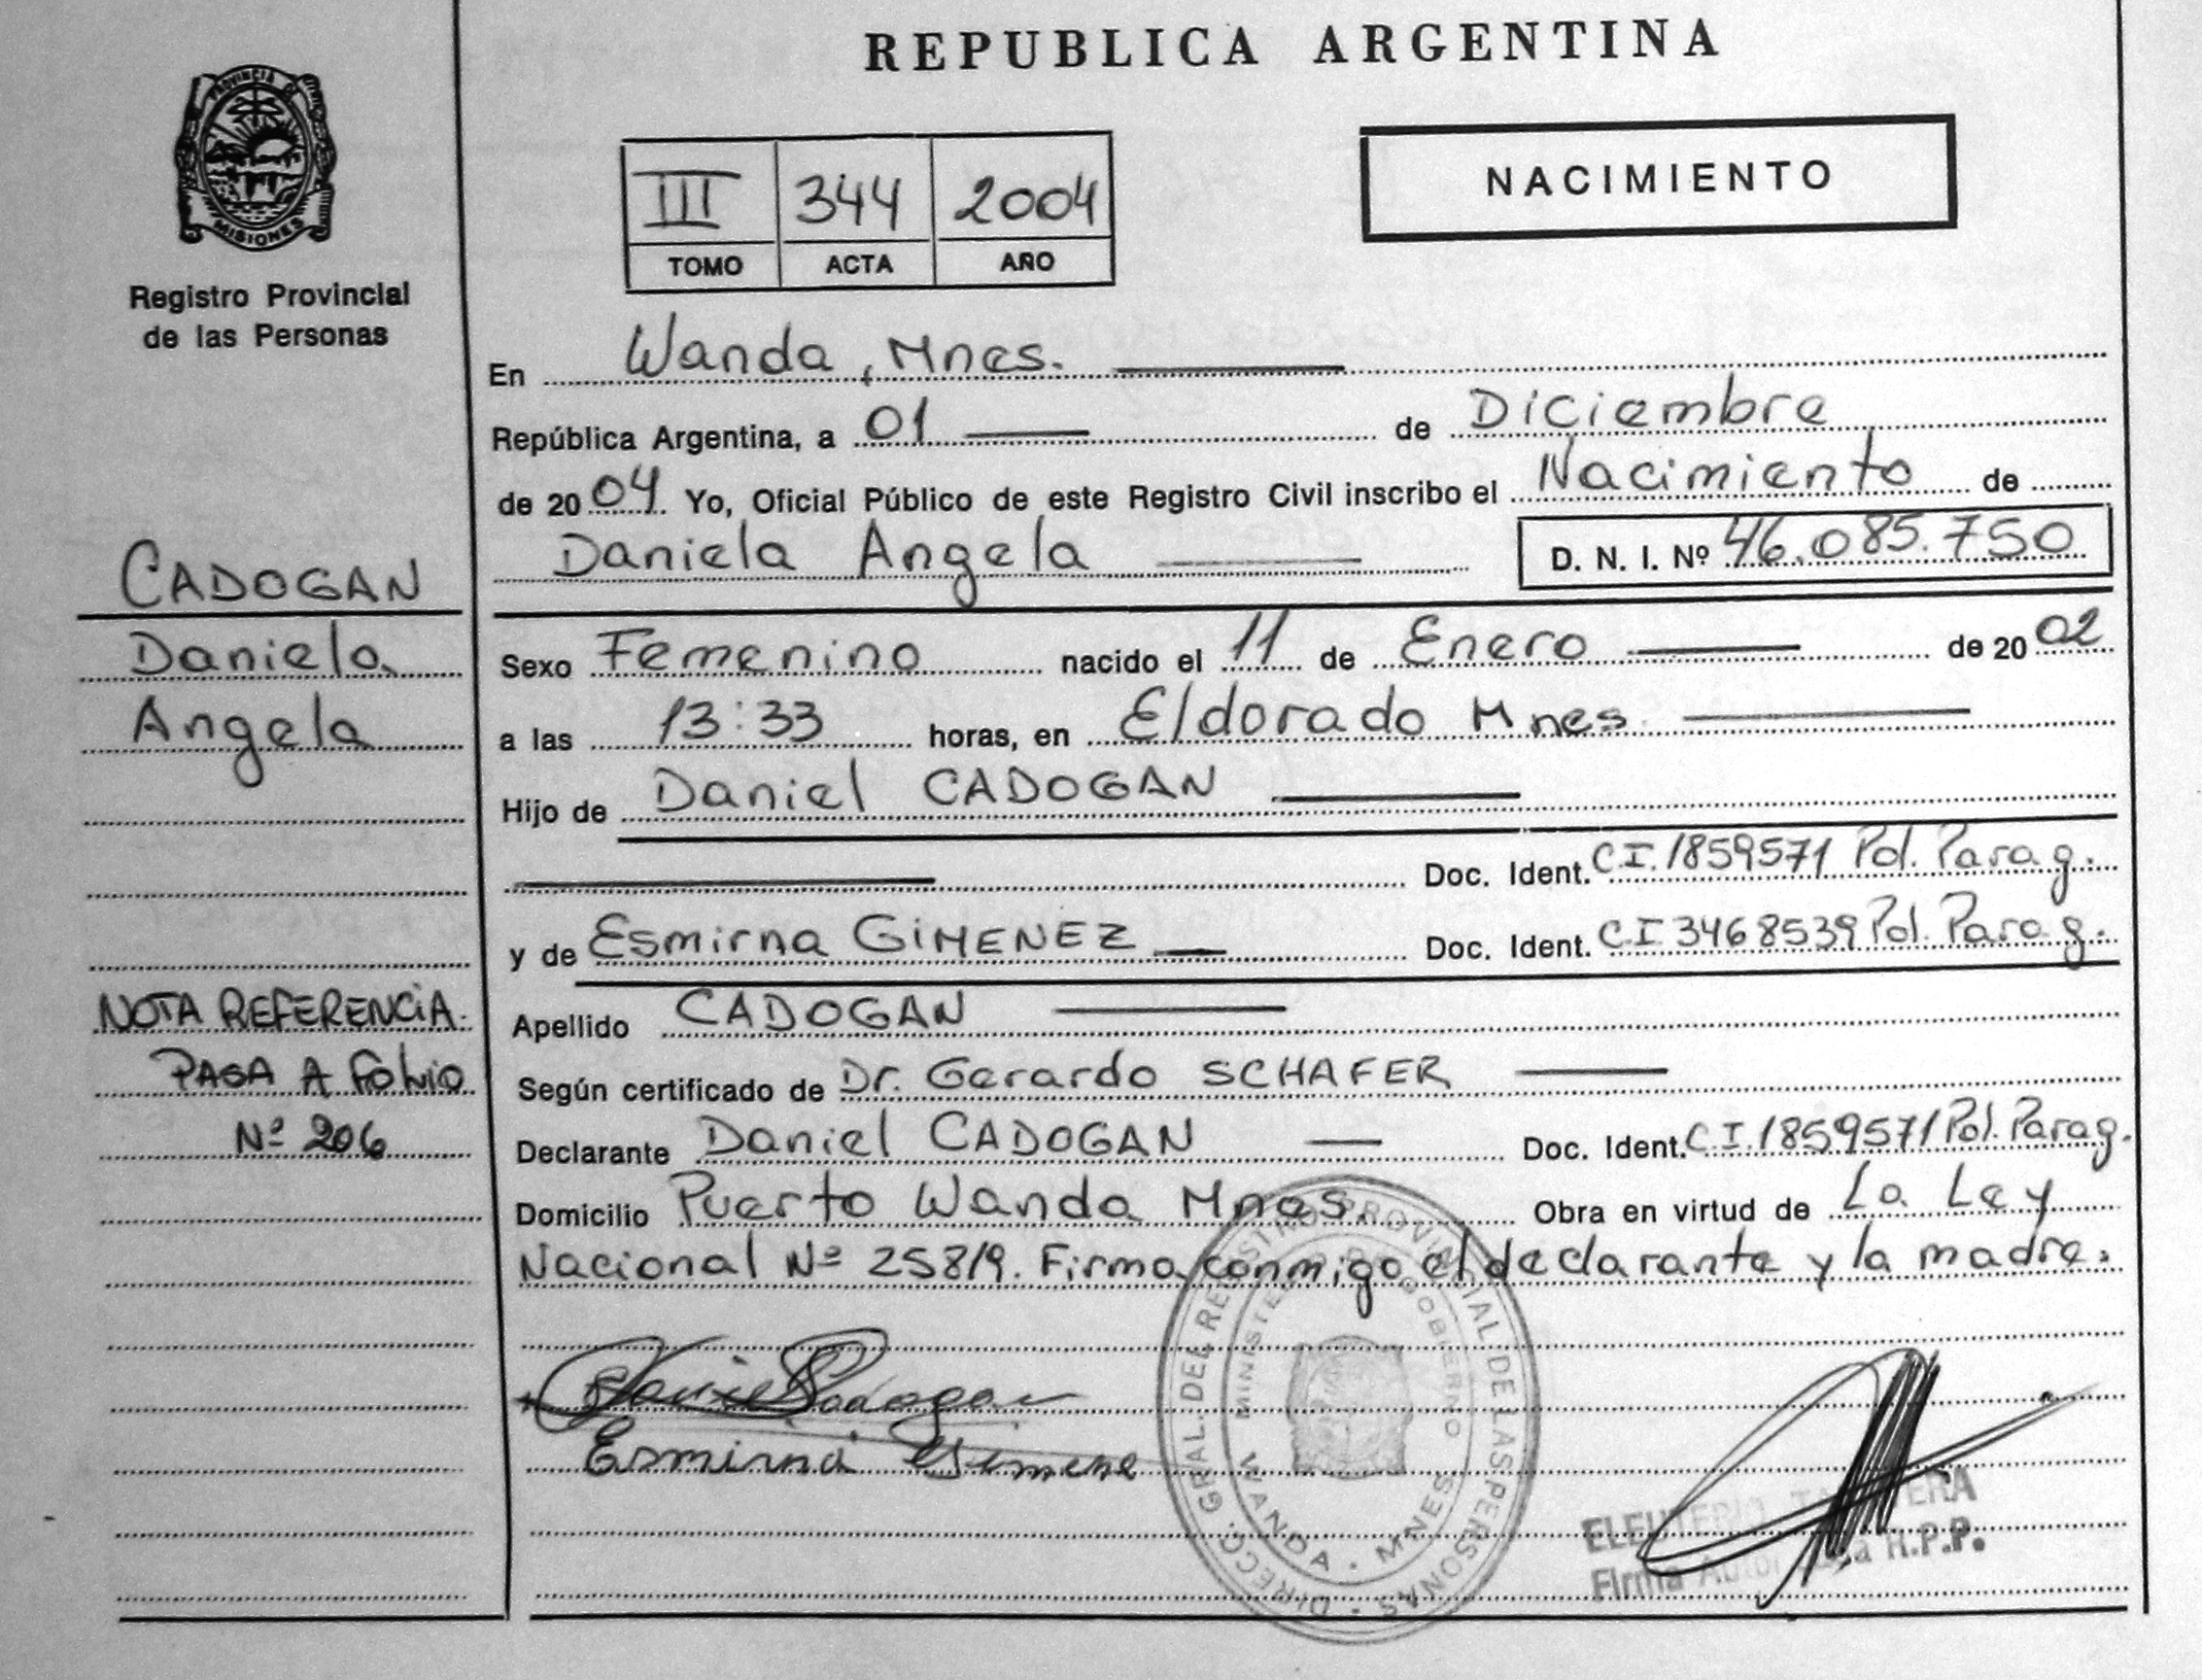 REPUBLICA ARGENTINA
PROVINCIA DE
MISIONES
Registro Provincial
de las Personas
NACIMIENTO
III 344 2004
TOMO ACTA AÑO
En Wanda, Mnes.
República Argentina, a 01 de Diciembre
de 2004 Yo, Oficial Público de este Registro Civil inscribo el Nacimiento de
Daniela Angela D. N. I. Nº 46.085.750
CADOGAN
Daniela
Angela
Sexo Femenino nacido el 11 de Enero de 2002
a las 13:33 horas, en Eldorado Mnes
Hijo de Daniel CADOGAN
Doc. Ident. C.I. 1859571 Pol. Parag.
y de Esmirna GIMENEZ Doc. Ident. C.I 3468539 Pol. Parag.
NOTA REFERENCIA.
PASA A Folio
Nº 206
Apellido CADOGAN
Según certificado de Dr. Gerardo SCHAFER
Declarante Daniel CADOGAN Doc. Ident. C.I. 1859571 Pol. Parag.
Domicilio Puerto Wanda Mnes. Obra en virtud de La Ley
Nacional Nº 25819. Firma conmigo el declarante y la madre.
Daniel Cadogan
Esmirna Gimene
DIRECC. GRAL. DEL REGISTRO PROVINCIAL DE LAS PERSONAS
MINISTERIO DE GOBIERNO
WANDA - MNES
ELEUTERIO
Firma R.P.P.